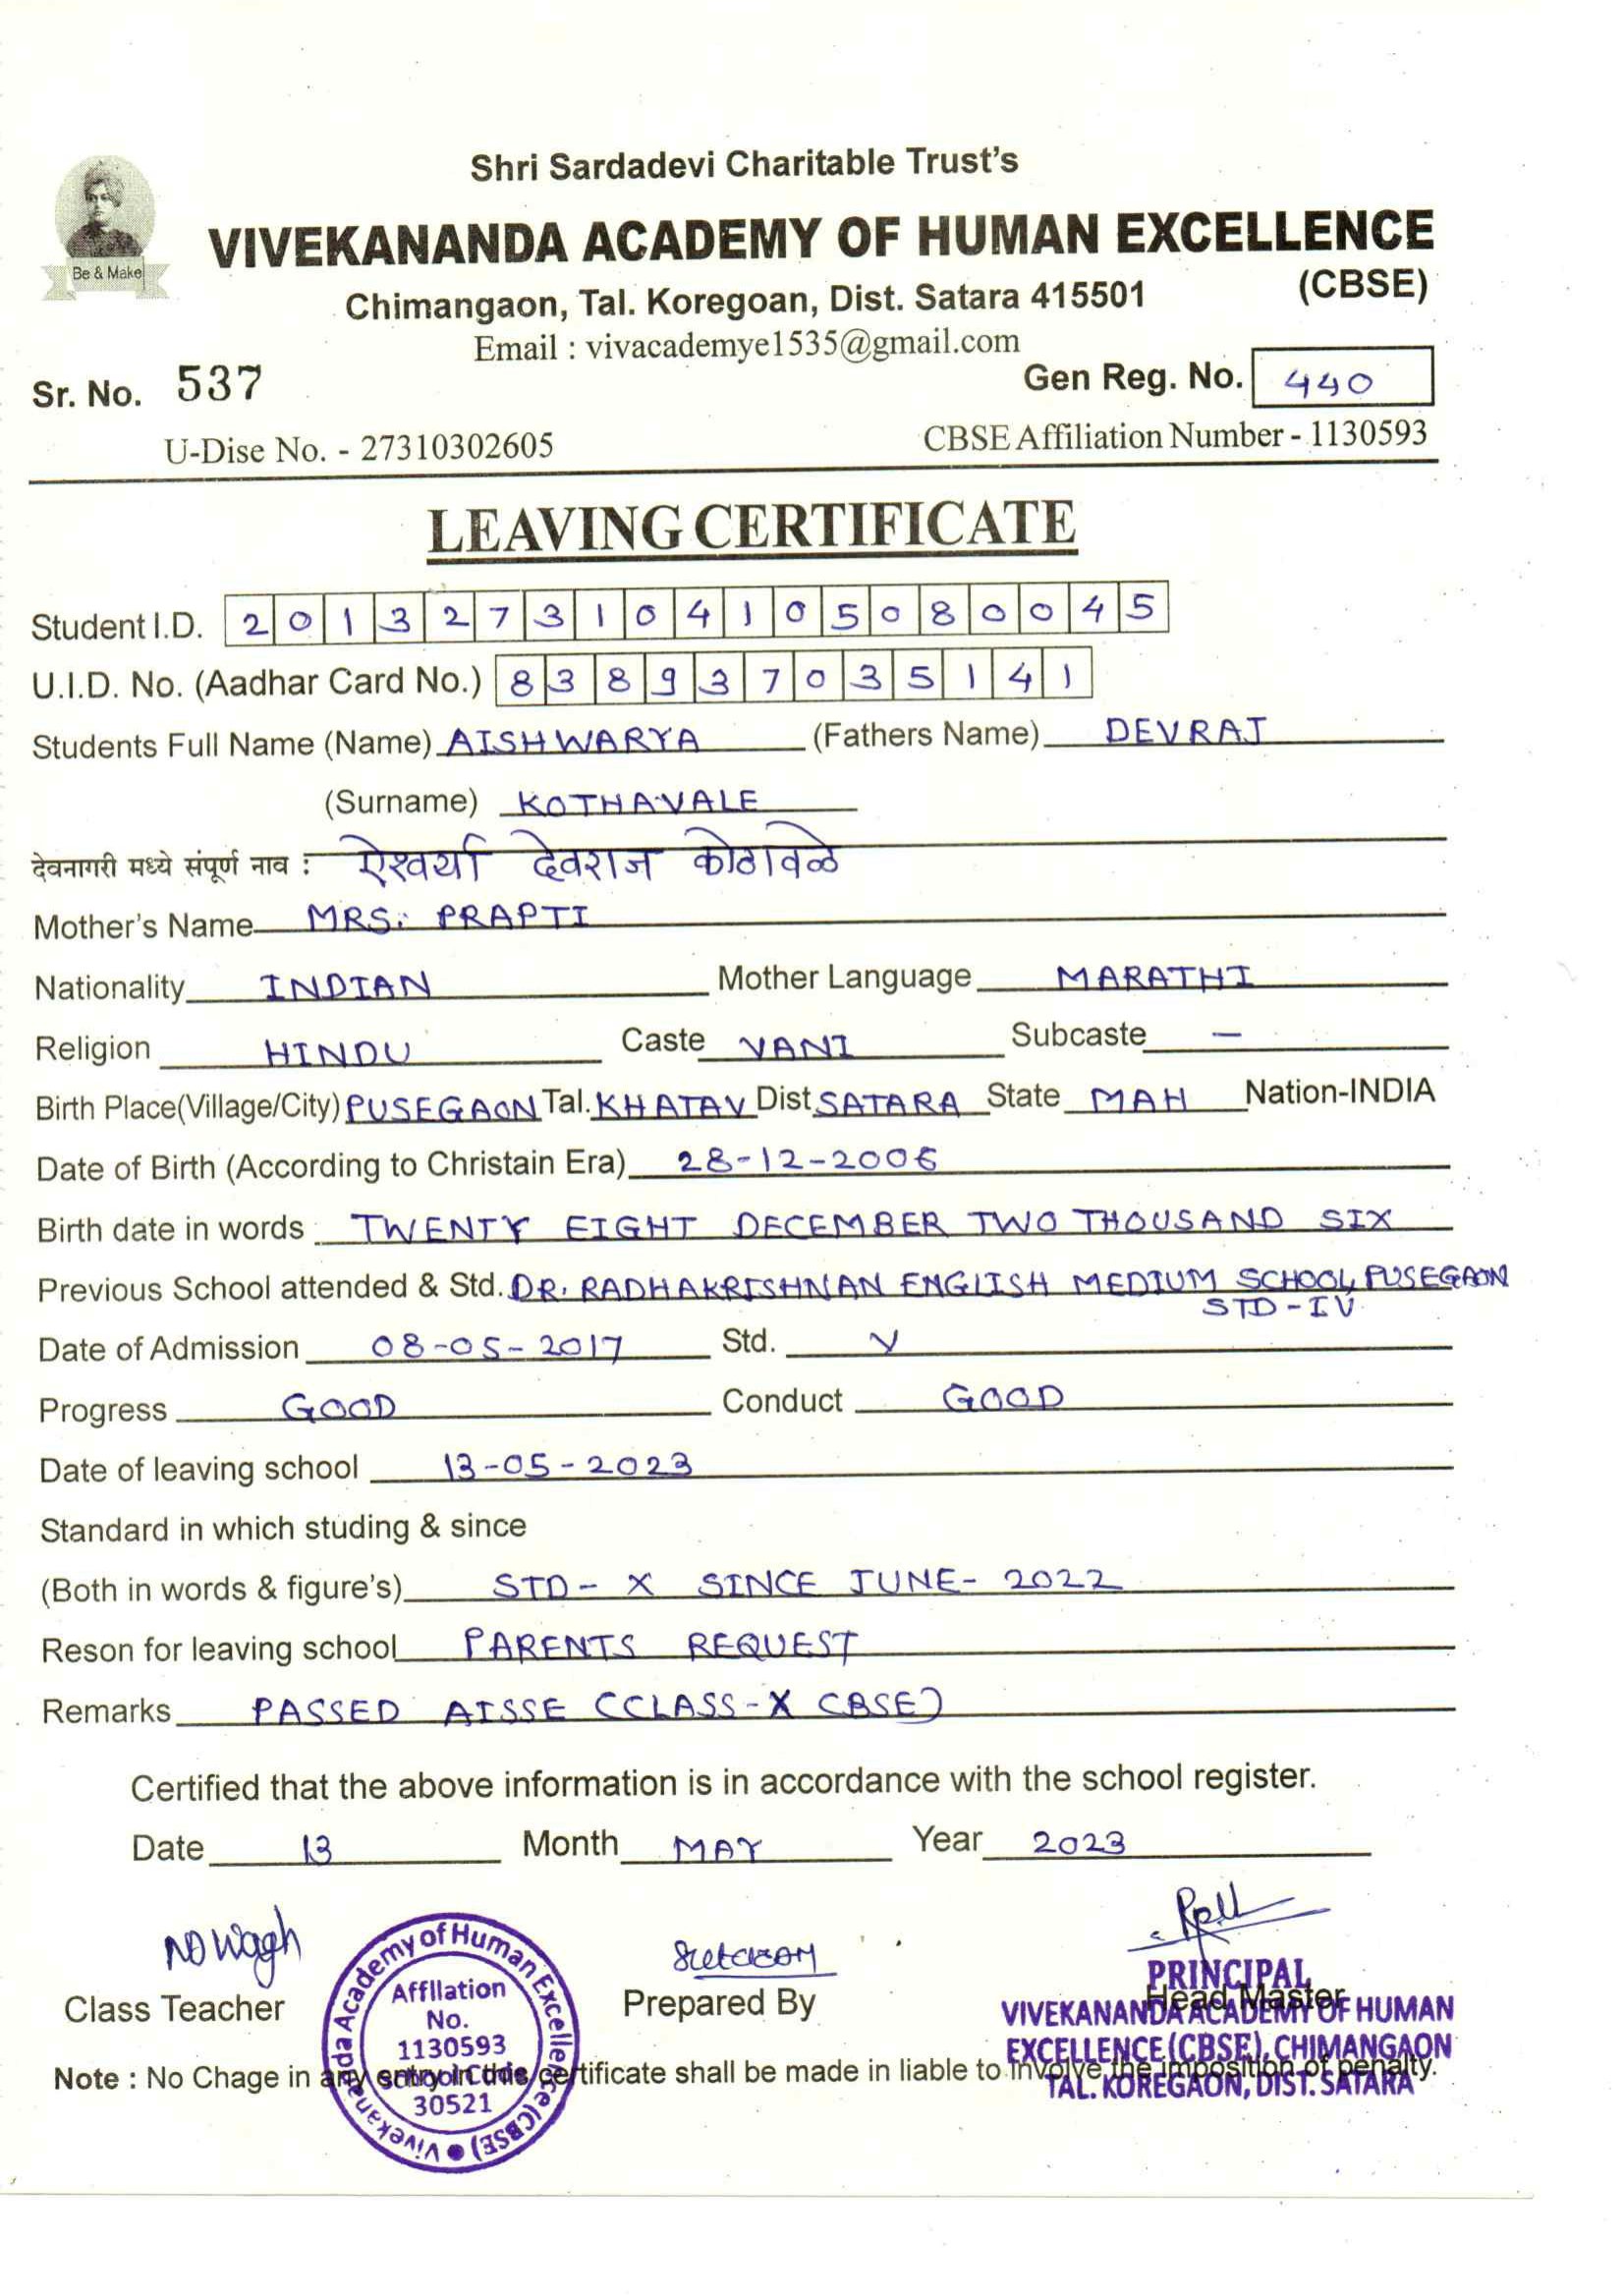 Shri Sardadevi Charitable Trust's
VIVEKANANDA ACADEMY OF HUMAN EXCELLENCE
Be & Make
Chimangaon, Tal. Koregoan, Dist. Satara 415501 (CBSE)
Email : vivacademye1535@gmail.com
Sr. No. 537 Gen Reg. No. 440
U-Dise No. - 27310302605 CBSE Affiliation Number - 1130593
LEAVING CERTIFICATE
Student I.D. 2013273104105080045
U.I.D. No. (Aadhar Card No.) 838937035141
Students Full Name (Name) AISHWARYA (Fathers Name) DEVRAJ
(Surname) KOTHAVALE
देवनागरी मध्ये संपूर्ण नाव : ऐश्वर्या देवराज कोठावळे
Mother's Name MRS. PRAPTI
Nationality INDIAN Mother Language MARATHI
Religion HINDU Caste VANI Subcaste —
Birth Place(Village/City) PUSEGAON Tal. KHATAV Dist SATARA State MAH Nation-INDIA
Date of Birth (According to Christain Era) 28-12-2006
Birth date in words TWENTY EIGHT DECEMBER TWO THOUSAND SIX
Previous School attended & Std. DR. RADHAKRISHNAN ENGLISH MEDIUM SCHOOL, PUSEGAON
STD-IV
Date of Admission 08-05-2017 Std. V
Progress GOOD Conduct GOOD
Date of leaving school 13-05-2023
Standard in which studing & since
(Both in words & figure's) STD- X SINCE JUNE- 2022
Reson for leaving school PARENTS REQUEST
Remarks PASSED AISSE (CLASS-X CBSE)
Certified that the above information is in accordance with the school register.
Date 13 Month MAY Year 2023
ND Wagh
Class Teacher Prepared By Head Master
PRINCIPAL
VIVEKANANDA ACADEMY OF HUMAN
EXCELLENCE (CBSE), CHIMANGAON
TAL. KOREGAON, DIST. SATARA
Vivekananda Academy of Human Excellence (CBSE)
Affilation
No.
1130593
School Code
30521
Note : No Chage in any entry in this certificate shall be made in liable to involve the imposition of penalty.